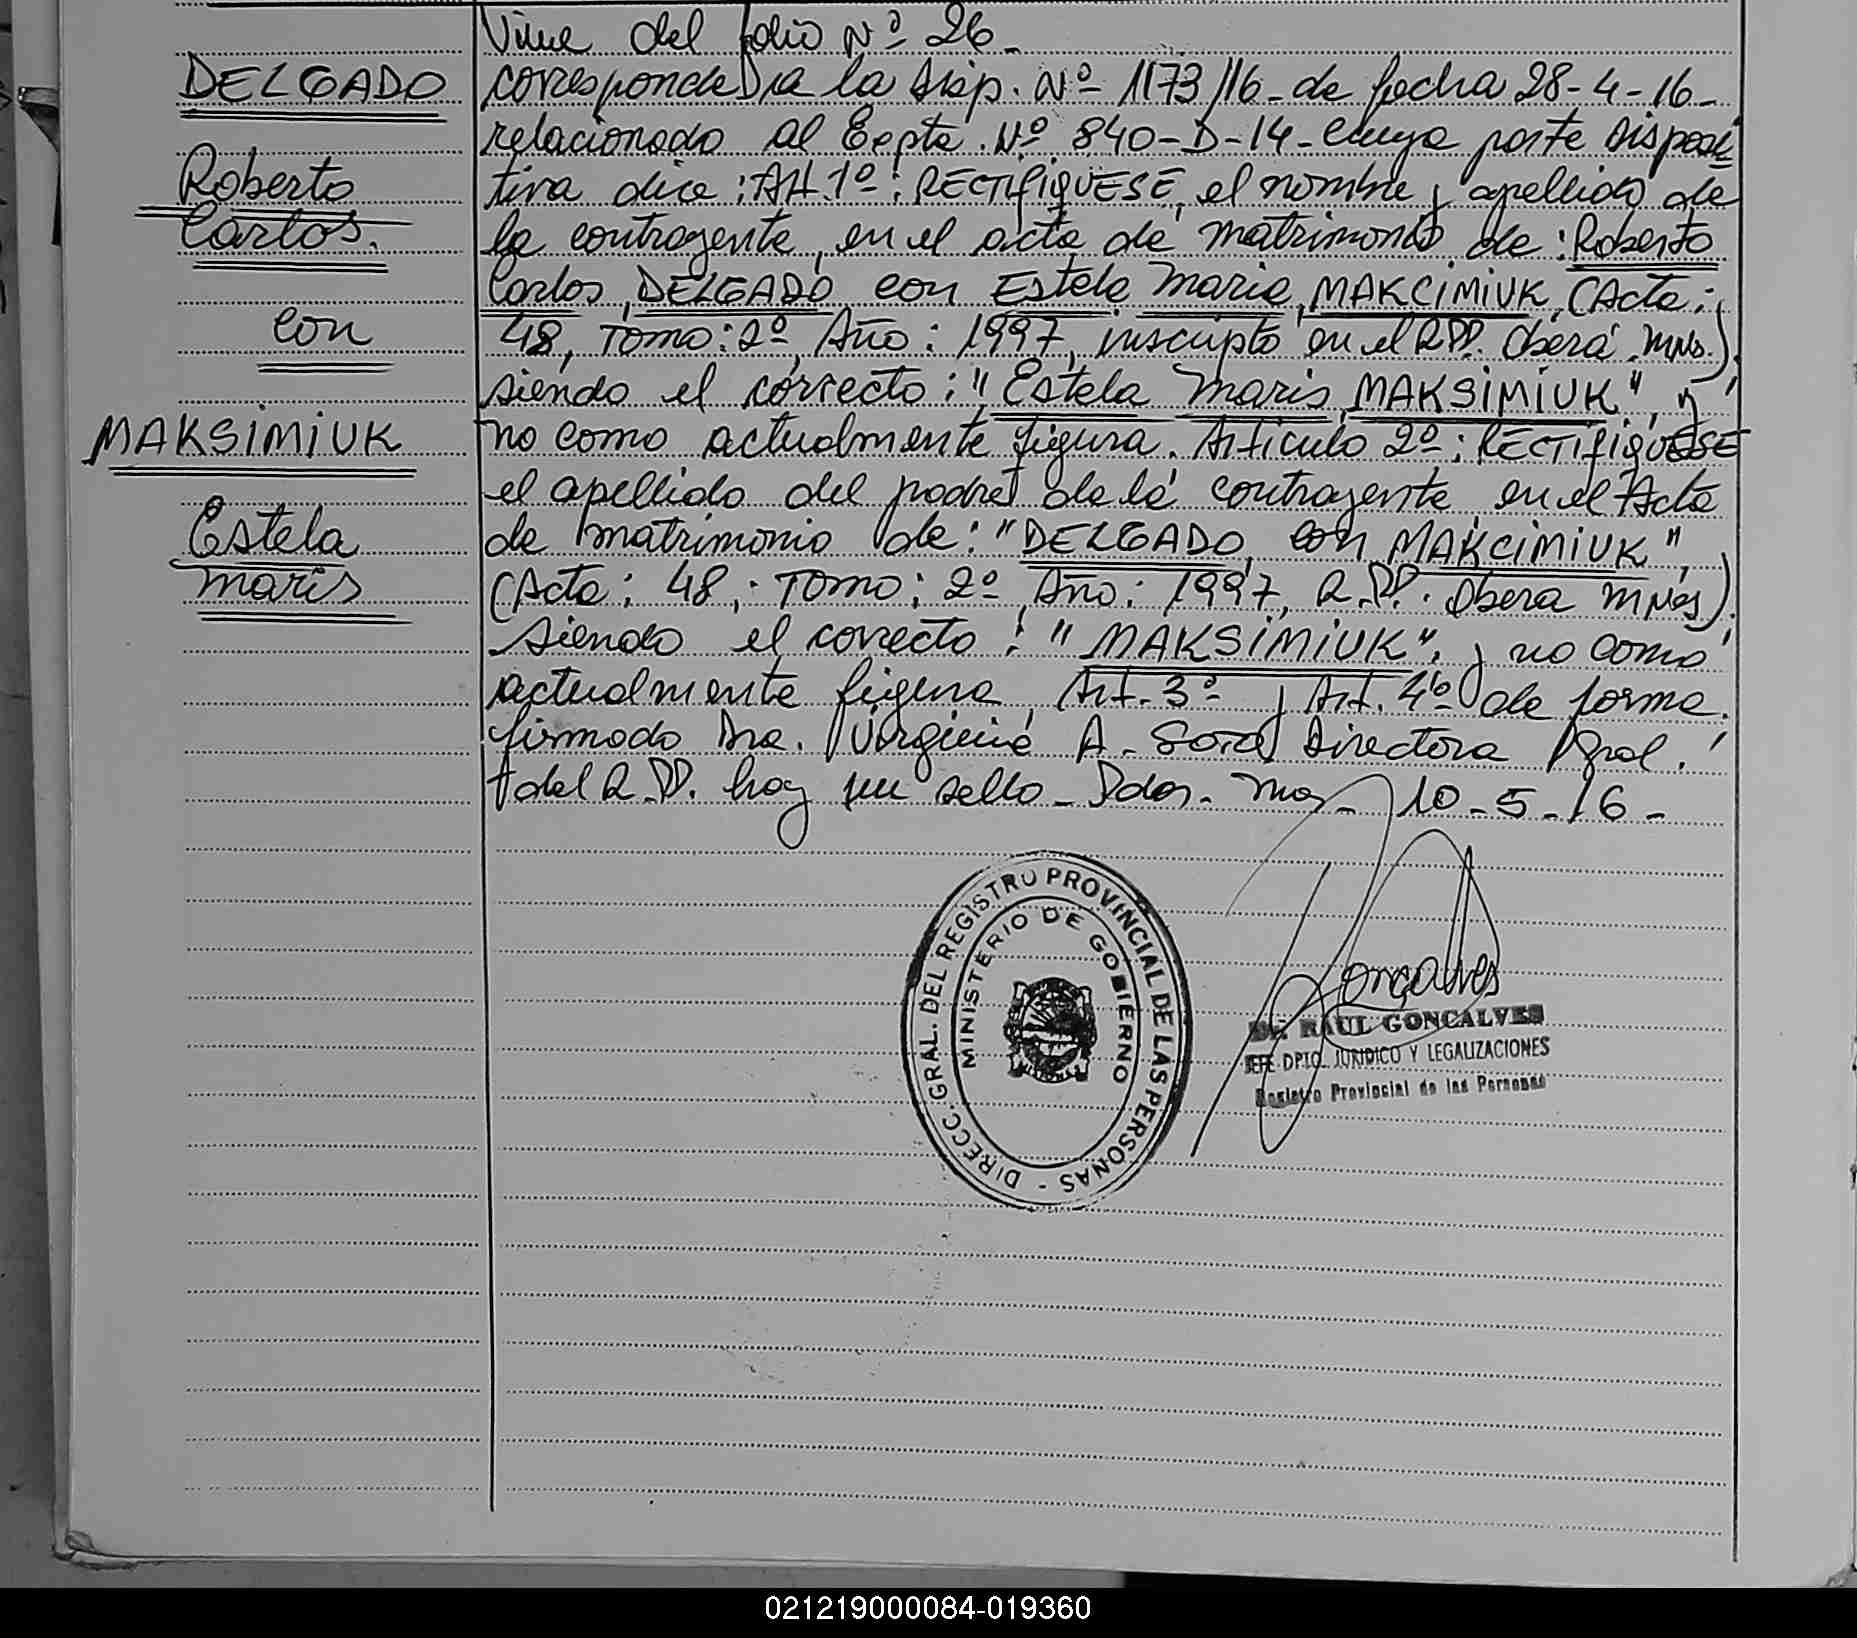 Viene del folio Nº 26-
DELGADO
Roberto
Carlos.
con
MAKSIMIUK
Estela
Maris
corresponde a la Disp. Nº 1173/16- de fecha 28-4-16-
relacionado al Expte. Nº 840-D-14- cuya parte disposi
tiva dice: Art. 1º: RECTIFIQUESE, el nombre y apellido de
la contrayente, en el acta de matrimonio de: Roberto
Carlos, DELGADO, con Estela Maria, MAKCIMIUK, (Acta:
48, Tomo: 2º, Año: 1997, inscripto en el R.P.P. Oberá. Mnes.)
siendo el correcto: "Estela Maris, MAKSIMIUK", y
no como actualmente figura. Articulo 2º: RECTIFIQUESE
el apellido del padre de la contrayente en el Acta
de matrimonio de: "DELGADO, con MAKCIMIUK",
(Acta: 48; Tomo: 2º, Año: 1997, R.P.P. Obera Mnes).
siendo el correcto: "MAKSIMIUK", y no como
actualmente figura, Art. 3º y Art. 4º de forma.
firmado Dra. Virginia A. Directora Gral.
del R.P.P. hay un sello- Pdas. Mns- 10-5-16-
DIRECC. GRAL. DEL REGISTRO PROVINCIAL DE LAS PERSONAS -
MINISTERIO DE GOBIERNO
MISIONES
Gonçalves
Dr. RAUL GONCALVES
JEFE DPTO. JURIDICO Y LEGALIZACIONES
Registro Provincial de las Personas
021219000084-019360